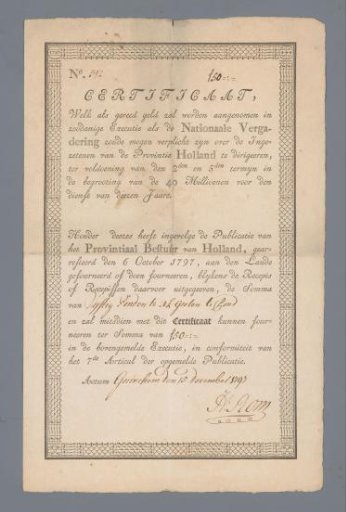 No.
150:-:-
CERTIFICAAT,
Welk als gereed geld zal worden aangenomen in
zoodanige Executie als de Nationaale Verga-
dering zoude mogen verplicht zyn over de Inge-
zetenen van de Provintie Holland te dirigeeren,
ter voldoening van den 2den en 3den termyn in
de begrooting van de 40 Millioenen voor den
dienst van deezen Jaare.
Houder deezes heeft ingevolge de Publicatie van
het Provintiaal Bestuur van Holland, gear-
resteerd den 6 October 1797, aan den Lande
gefourneerd of doen fourneeren, blykens de Recepis
of Recipissen daarvoor uitgegeven, de Somma
van
en zal mitsdien met dit Certificaat kunnen four-
neeren ter Somma van f50:-:-
in de bovengemelde Executie, in conformiteit van
het 7de Articul der opgemelde Publicatie.
Actum Gorinchem den 15 December 1797